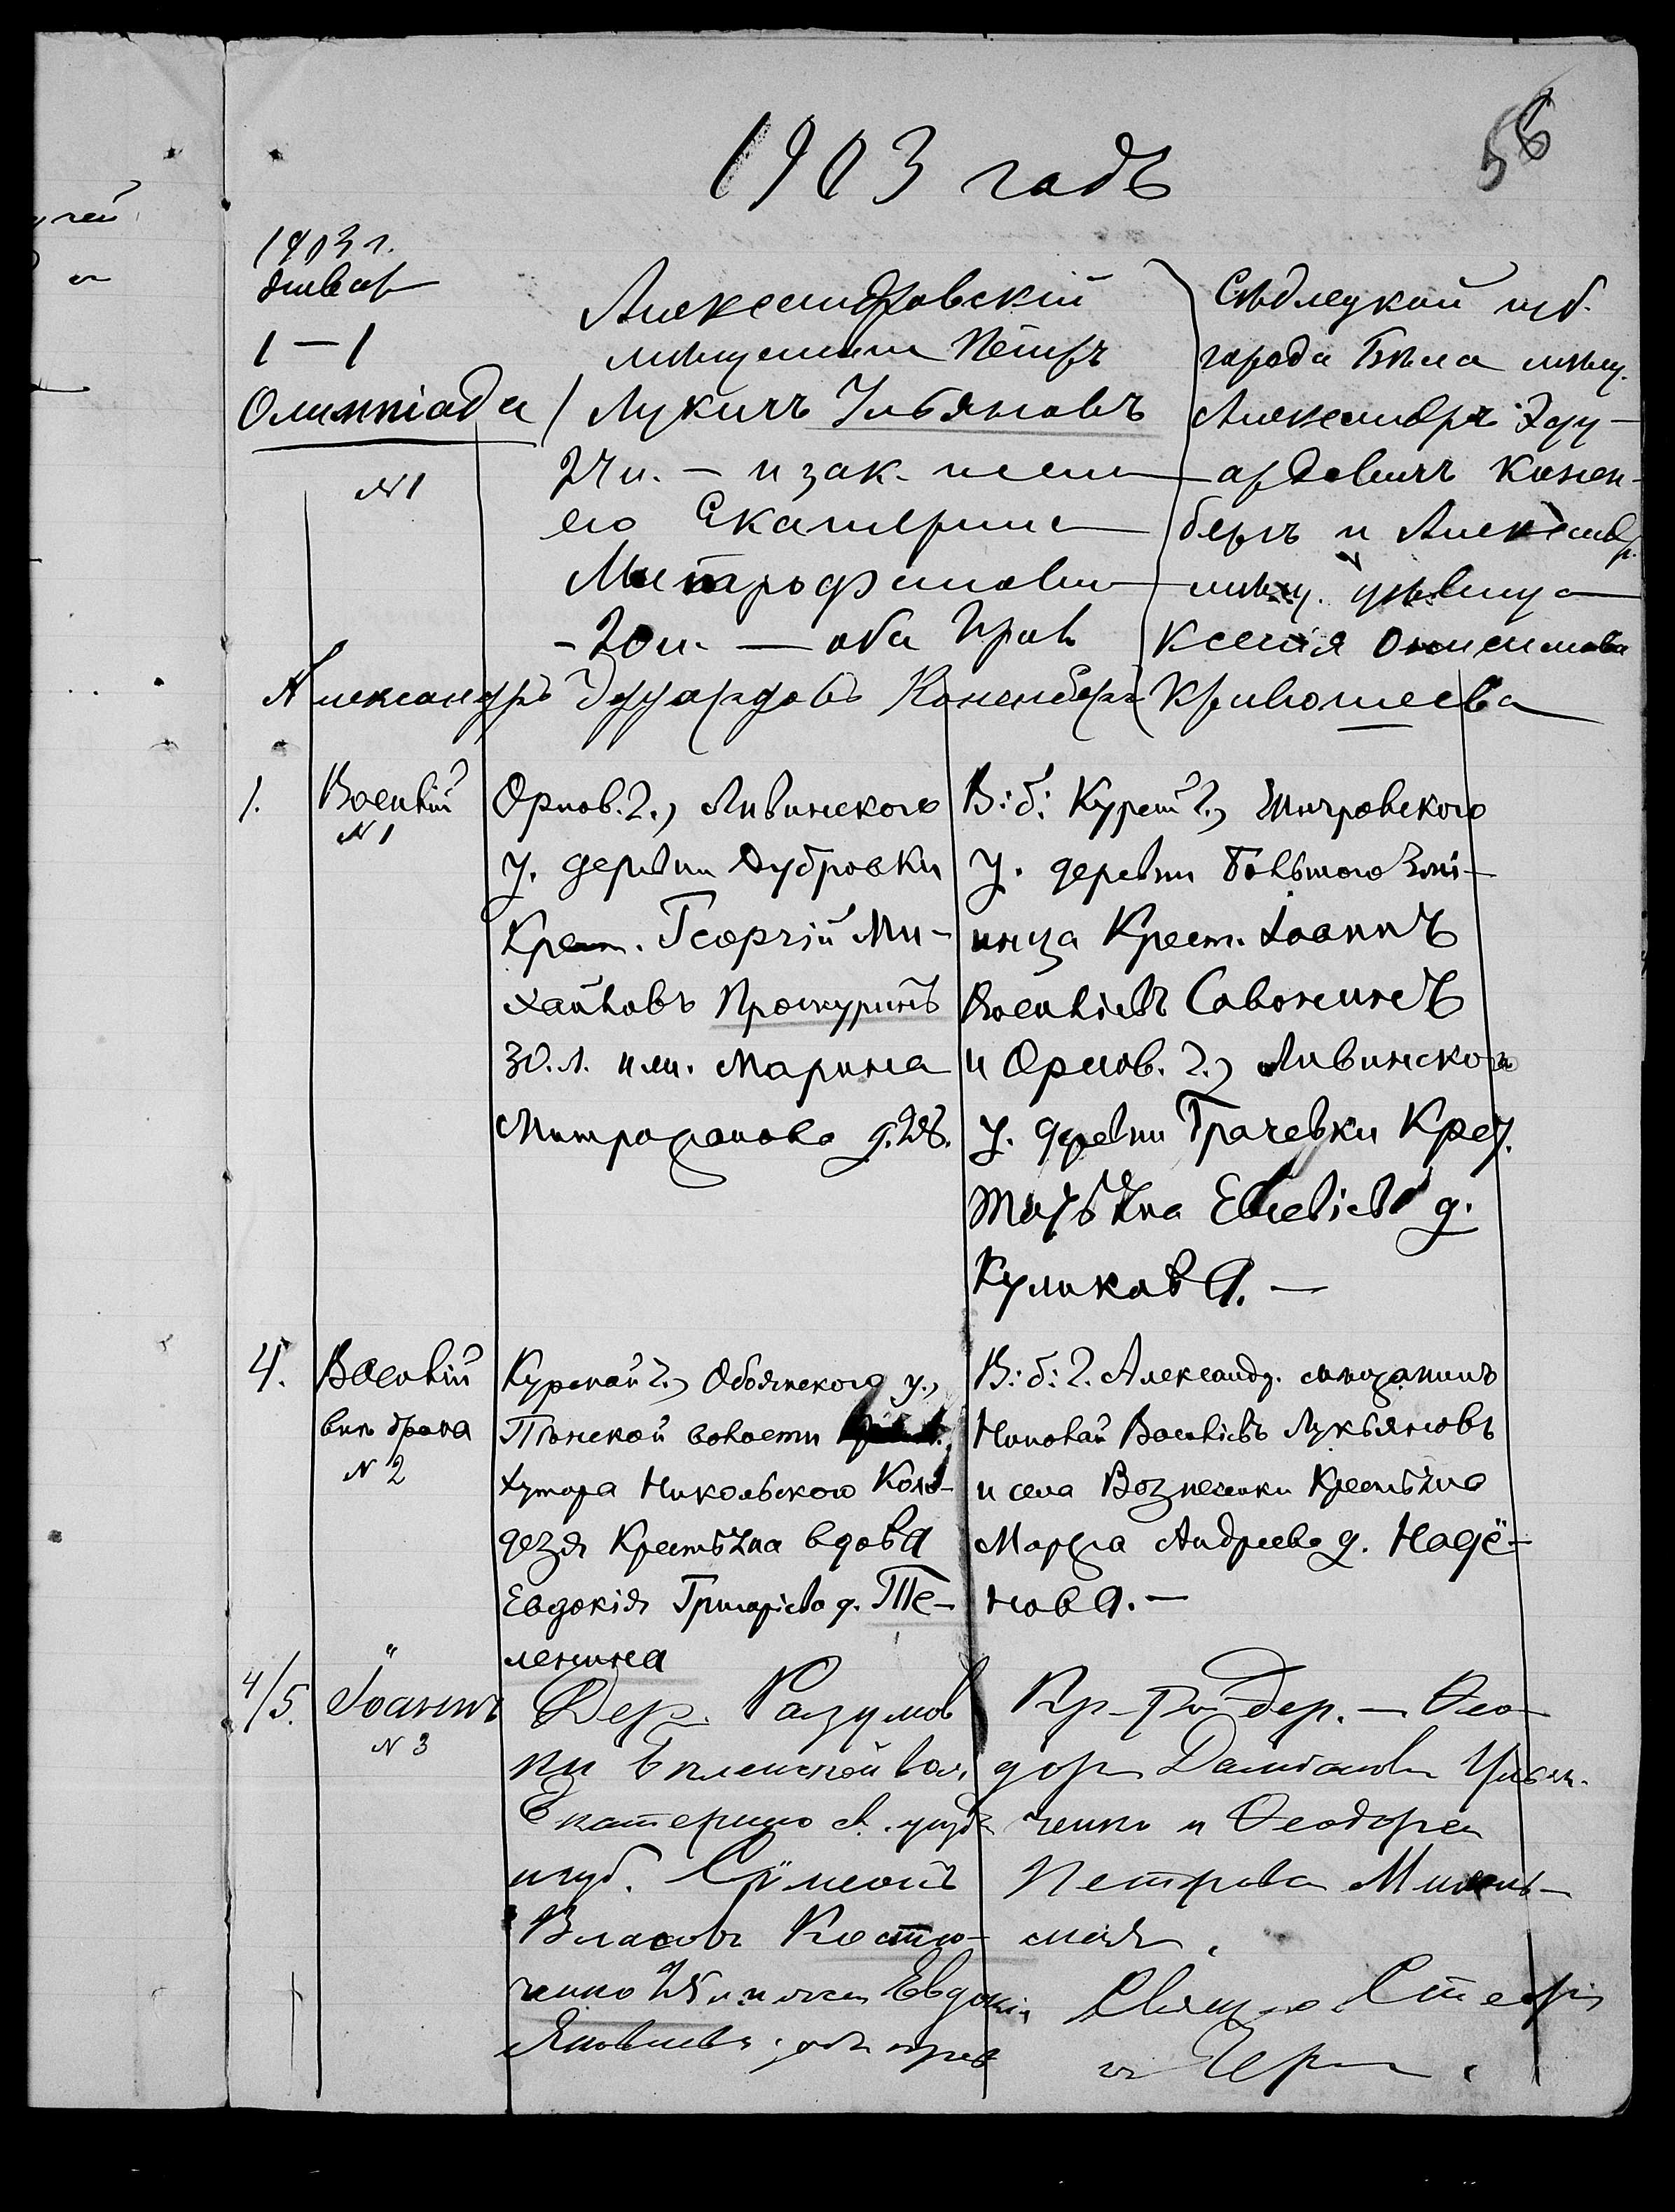 1903 годъ
56
1903 г.
январь
1 — 1
Олимпіада
№ 1
Александровскій
мѣщанинъ Петръ
Лукичъ Ульяновъ
24 л. — и зак. жена
его Екатерина
Митрофановна
- 20 л. — оба Прав
Сѣдлецкой губ.
города Бѣла мѣщ.
Александръ Эду-
ардовичъ Конен-
бергъ и Александр.
мѣщ. дѣвица
Ксенія Онисимова
Кривошеева
Александръ Эдуардовъ Коненбергъ
1.
Василій
№ 1
Орлов. г., Ливенского
у. деревни Дубровки
Крест. Георгій Ми-
хайловъ Проскуринъ
30. л. и жи. Марина
Митрофанова д. 28.
В: б: Курской г., Щигровского
у. деревни Большого Змі-
инца Крест. Іоаннъ
Васильевъ Савонинъ
и Орлов. г., Ливенского
у. деревни Грачевки Крес.
Татьяна Евсевіева д.
Куликова. —
4.
Василій
внѣ брака
№ 2
Курской г., Обоянского у.,
Пѣнской волости
хутора Никольского Коло-
дезя Крестьяна вдова
Евдокія Григоріева д. Те-
ленина
В: б: г. Александ. мѣщанинъ
Николай Васильевъ Лукьяновъ
и села Вознесенки Крестьяна
Марфа Андреева д. Надё-
нова. —
4/5.
Іоаннъ
№ 3
Дер. Разумов
ки Бѣленской вол.
Екатеринос. уѣзда
и губ. Сѵмеонъ
Власовъ Костю-
ченко 28 л. и жена Евдокія
Яковлева, оба прав
Кр- той дер. — Ѳео-
доръ Даміановъ Ульян.
ченко и Ѳеодора
Петрова